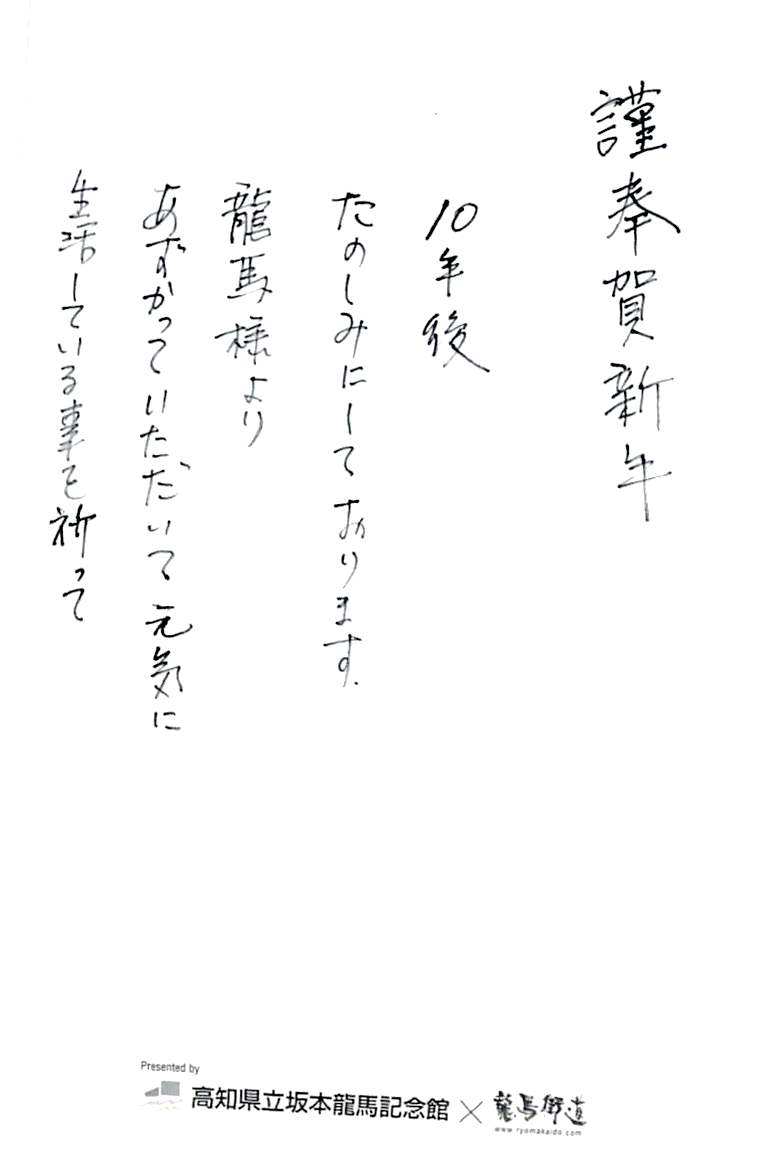 謹奉賀新年
10年後
たのしみにしております.
龍馬様より
あずかっていただいて元気に
生活している事を祈って
Presented by
高知県立坂本龍馬記念館×龍馬街道
www.ryomakaido.com